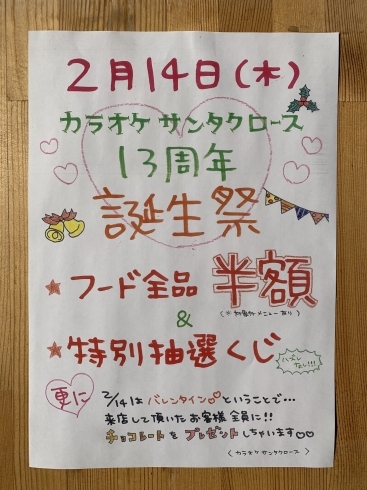 2月14日(木)
カラオケ サンタクロース
13周年
誕生祭
★ フード全品 半額
(※対象外メニューあり)
&
★ 特別抽選くじ
ハズレなし!!!
更に
2/14は バレンタイン♡ ということで…
来店して頂いたお客様全員に!!
チョコレートをプレゼントしちゃいます♡♡
〈 カラオケ サンタクロース 〉